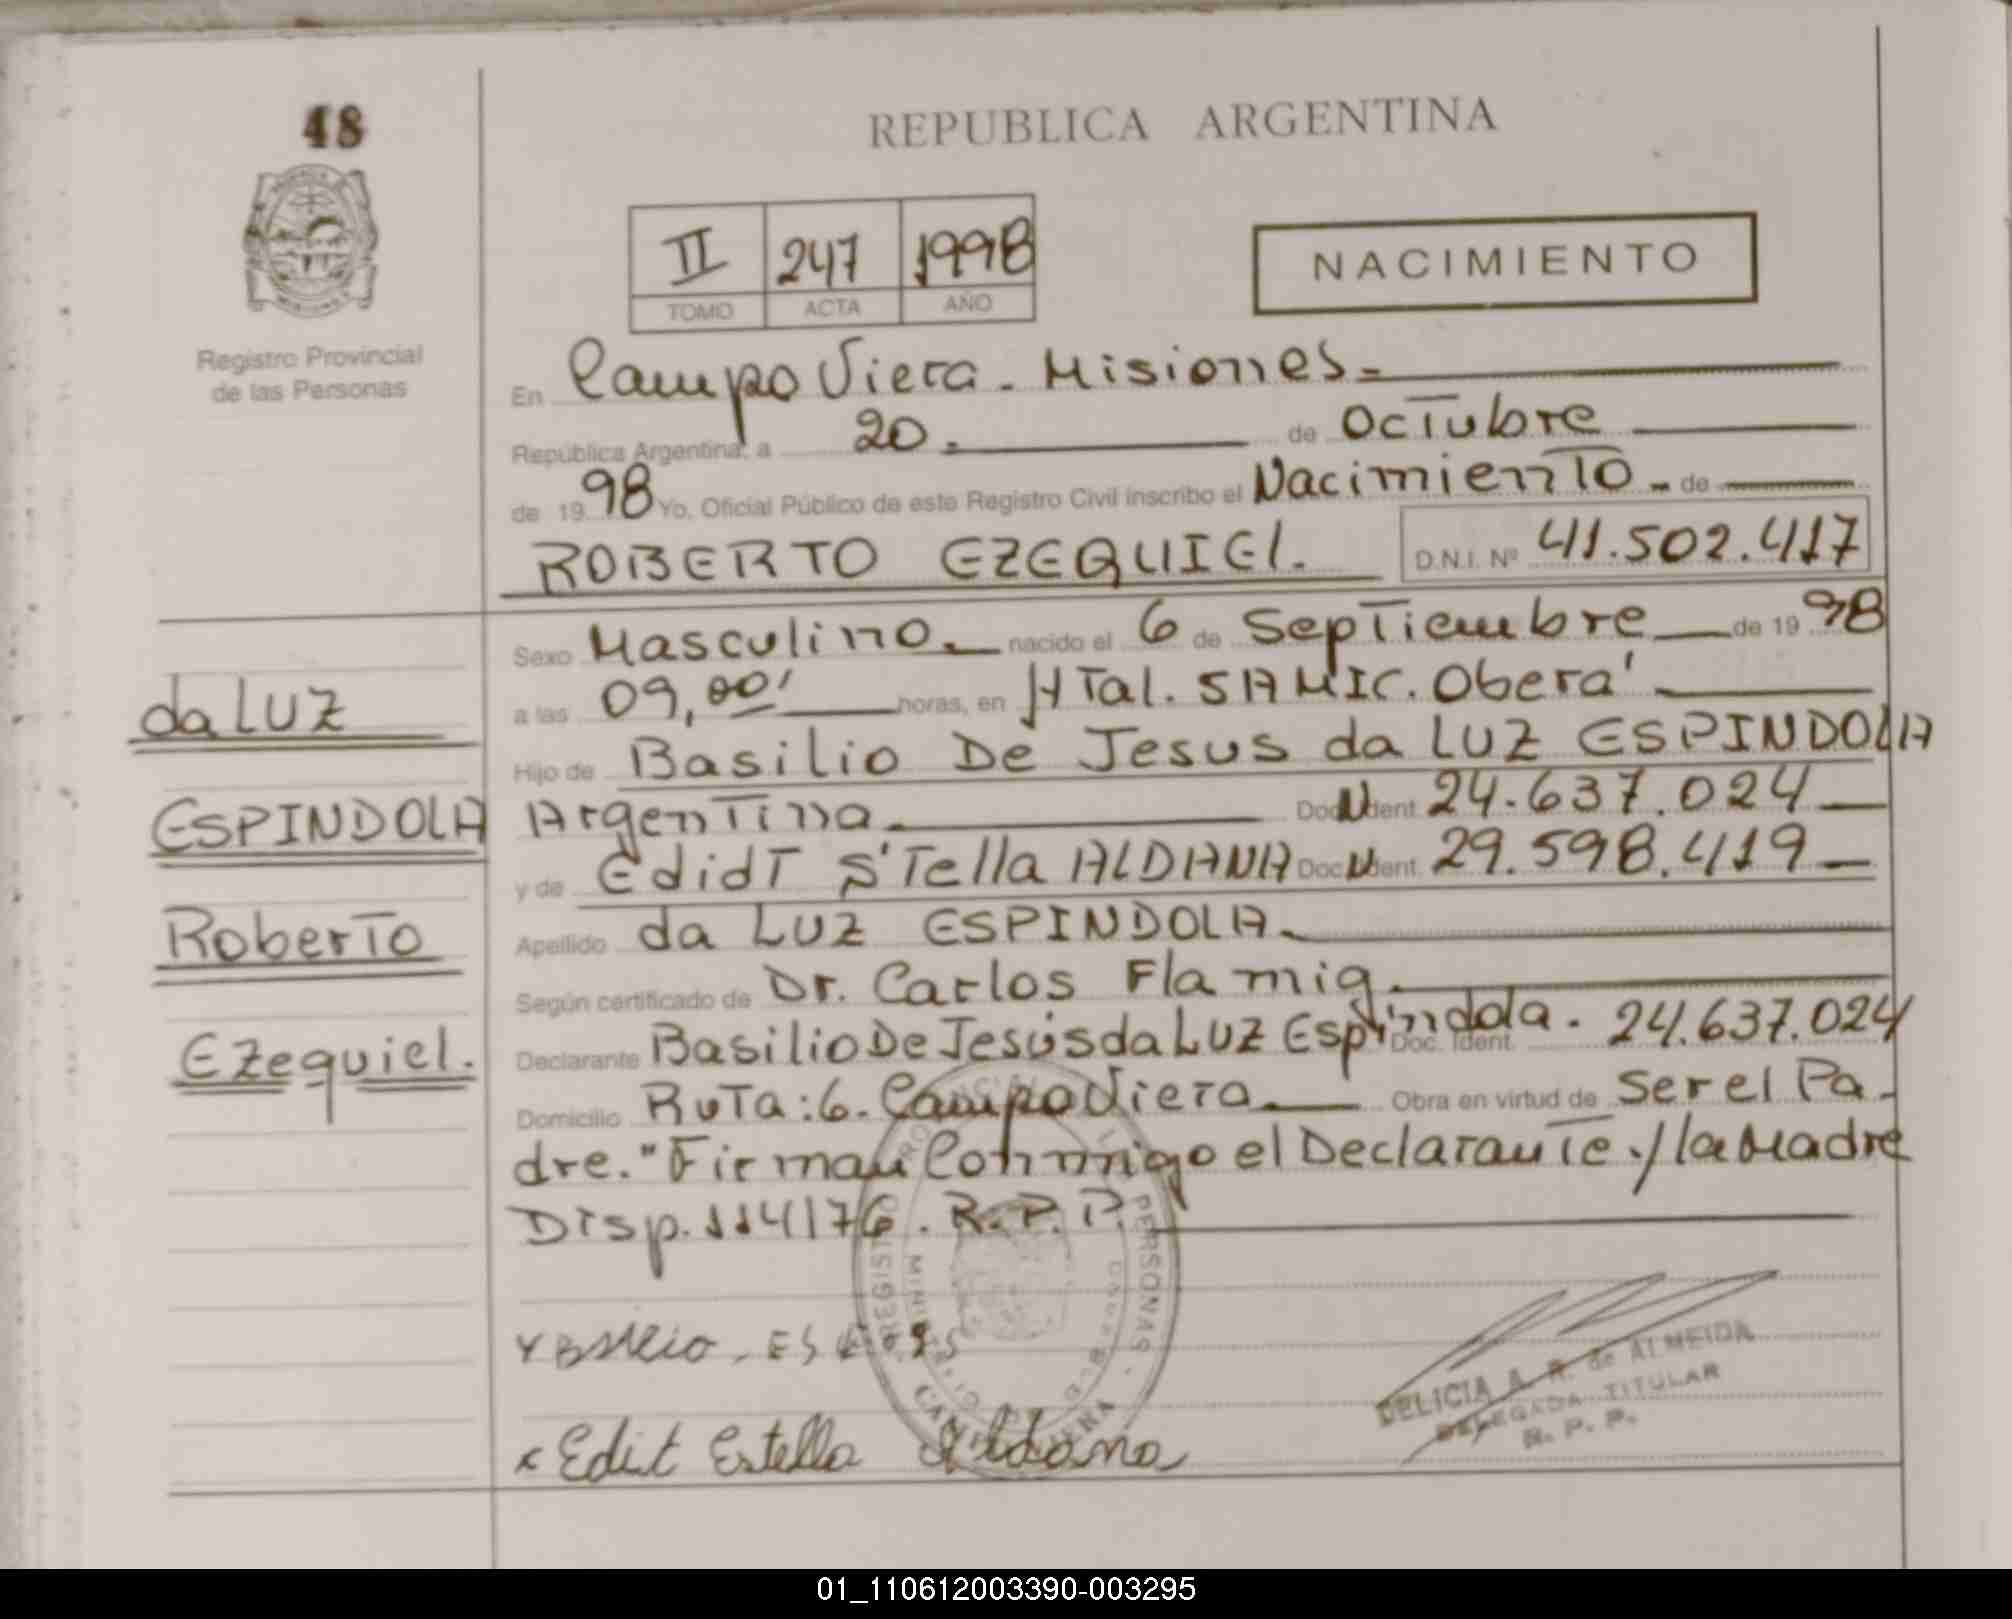 48
REPUBLICA ARGENTINA
II 247 1998
TOMO ACTA AÑO
NACIMIENTO
Registro Provincial
de las Personas
En Campo Viera - Misiones -
República Argentina, a 20 - de Octubre
de 1998 Yo, Oficial Público de este Registro Civil inscribo el Nacimiento - de
ROBERTO EZEQUIEL. D.N.I. Nº 41.502.417
Sexo Masculino - nacido el 6 de Septiembre de 1998
a las 09,00' horas, en HTal. SAMIC. Oberá
Hijo de Basilio De Jesus da LUZ ESPINDOLA
Argentina Doc. Ident. 24.637.024
y de Edidt S'Tella ALDANA Doc. Ident. 29.598.419
Apellido da LUZ ESPINDOLA
Según certificado de Dr. Carlos Flamig.
Declarante Basilio De Jesús da LUZ Espindola. Doc. Ident. 24.637.024
Domicilio Ruta: 6. Campo Viera Obra en virtud de Ser el Pa-
dre. "Firman Conmigo el Declarante y la Madre
Disp. 114/76. R.P.P.
da LUZ
ESPINDOLA
Roberto
Ezequiel.
x Edit Estella Aldana
REGISTRO PROVINCIAL PERSONAS
DELICIA A. R. de ALMEIDA
DELEGADA TITULAR
R. P. P.
01_110612003390-003295